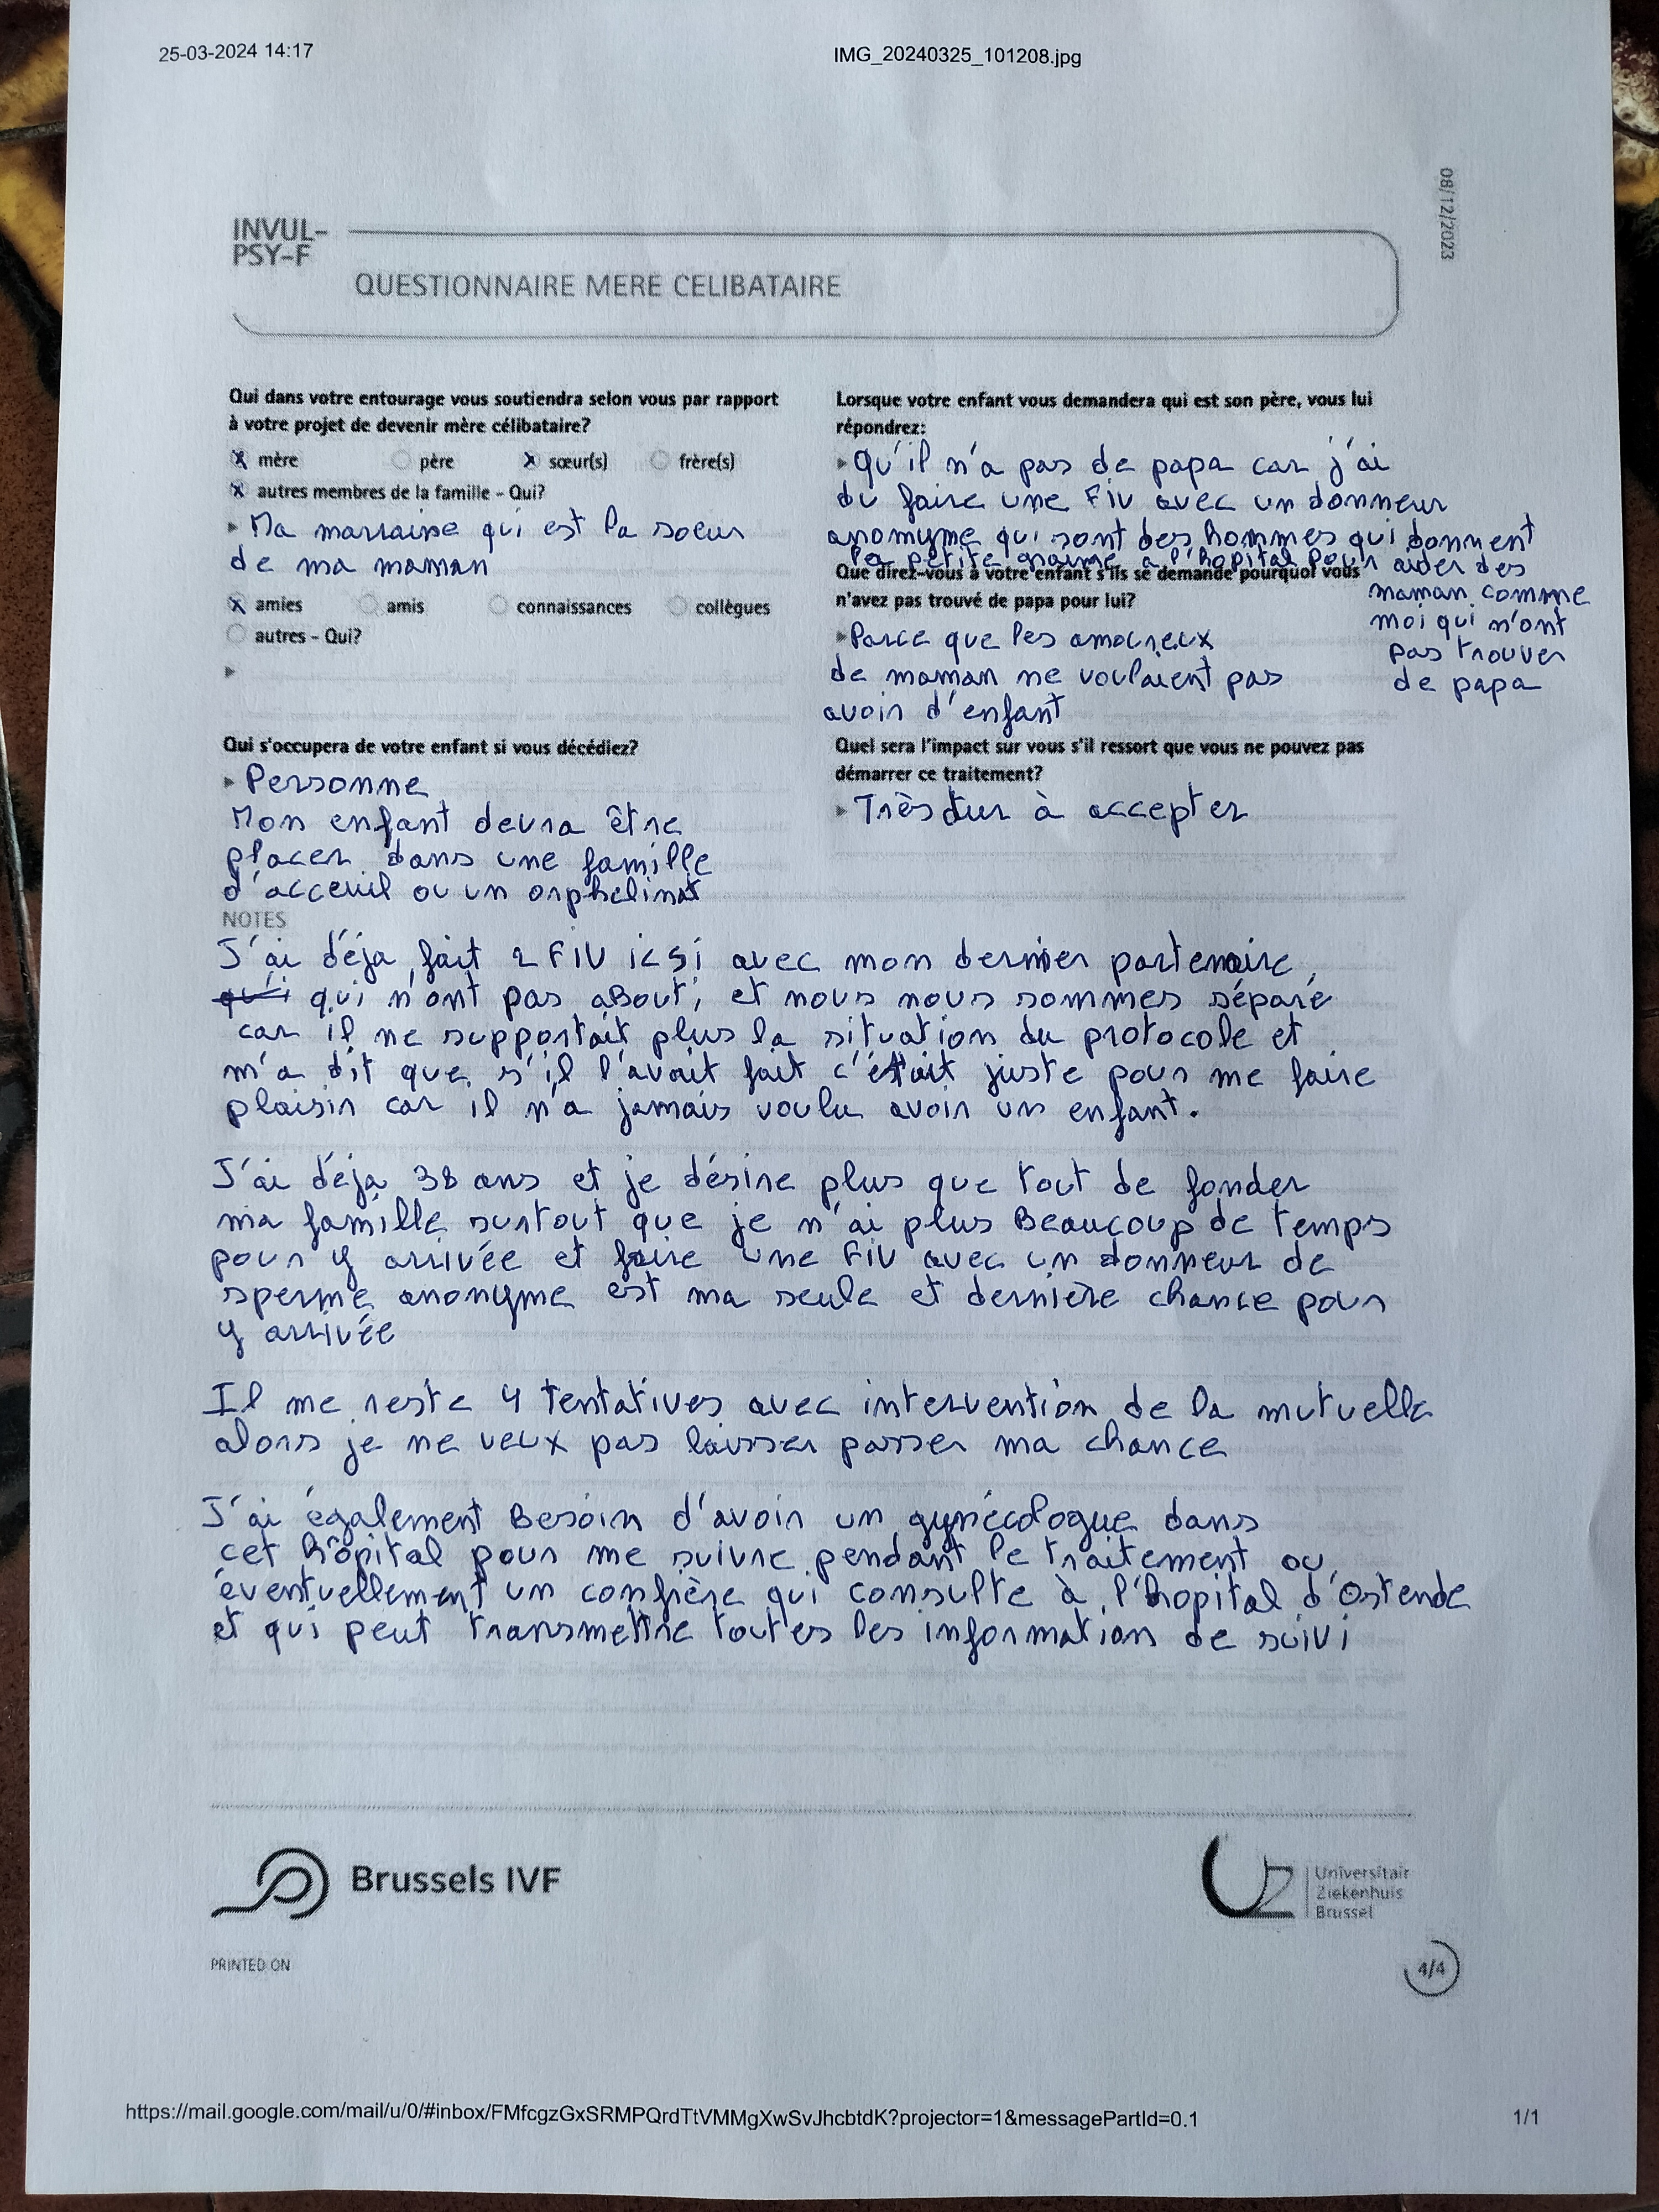 25-03-2024 14:17
IMG_20240325_101208.jpg
08/12/2023
INVUL-
PSY-F
QUESTIONNAIRE MERE CELIBATAIRE
Qui dans votre entourage vous soutiendra selon vous par rapport
à votre projet de devenir mère célibataire?
x mère père x sœur(s) frère(s)
x autres membres de la famille - Qui?
Ma marraine qui est la soeur
de ma maman
x amies amis connaissances collègues
autres - Qui?
Qui s'occupera de votre enfant si vous décédiez?
Personne
Mon enfant devra être
placer dans une famille
d'acceuil ou un orphelinat
Lorsque votre enfant vous demandera qui est son père, vous lui
répondrez:
Qu'il n'a pas de papa car j'ai
du faire une FIV avec un donneur
anonyme qui sont des hommes qui donnent
la petite graine à l'hopital pour aider des
maman comme
moi qui n'ont
pas trouver
de papa
Que direz-vous à votre enfant s'ils se demande pourquoi vous
n'avez pas trouvé de papa pour lui?
Parce que les amoureux
de maman ne voulaient pas
avoir d'enfant
Quel sera l'impact sur vous s'il ressort que vous ne pouvez pas
démarrer ce traitement?
Très dur à accepter
NOTES
J'ai déja fait 2 FIV icsi avec mon dernier partenaire,
qui n'ont pas abouti et nous nous sommes séparé
car il ne supportait plus la situation du protocole et
m'a dit que s'il l'avait fait c'était juste pour me faire
plaisir car il n'a jamais voulu avoir un enfant.
J'ai déja 38 ans et je désire plus que tout de fonder
ma famille surtout que je n'ai plus Beaucoup de temps
pour y arrivée et faire une FIV avec un donneur de
sperme anonyme est ma seule et dernière chance pour
y arrivée
Il me reste 4 tentatives avec intervention de la mutuelle
alors je ne veux pas laisser passer ma chance
J'ai également Besoin d'avoir un gynécologue dans
cet hôpital pour me suivre pendant le traitement ou
éventuellement un confrère qui consulte à l'hopital d'Ostende
et qui peut transmettre toutes les information de suivi
Brussels IVF
UZ
Universitair
Ziekenhuis
Brussel
PRINTED ON
4/4
https://mail.google.com/mail/u/0/#inbox/FMfcgzGxSRMPQrdTtVMMgXwSvJhcbtdK?projector=1&messagePartId=0.1
1/1